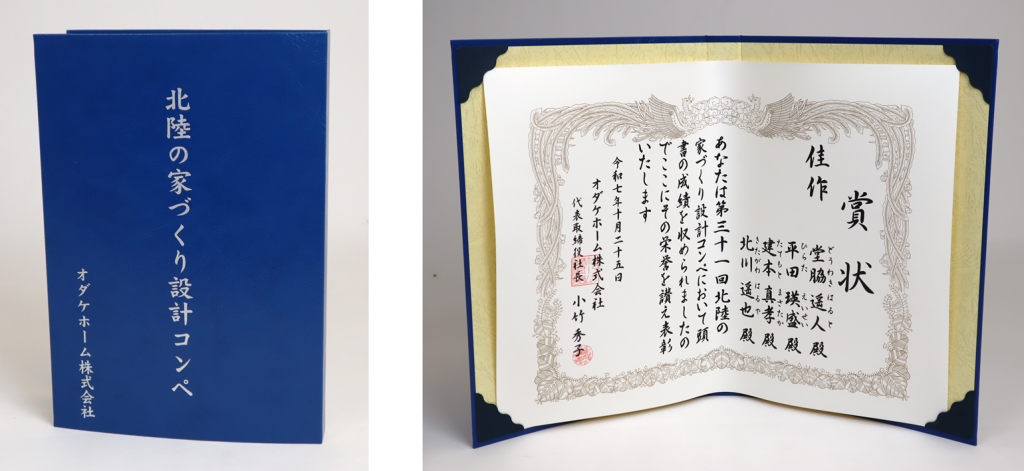 北陸の家づくり設計コンペ
オダケホーム株式会社
賞状
佳作
どうわき はると
堂脇 遥人 殿
ひらた えいせい
平田 瑛盛 殿
たてもと まさたか
建本 真孝 殿
きたがわ はるや
北川 遥也 殿
あなたは第三十一回北陸の
家づくり設計コンペにおいて頭
書の成績を収められましたの
でここにその栄誉を讃え表彰
いたします
令和七年十月二十五日
オダケホーム株式会社
代表取締役社長 小竹 秀子